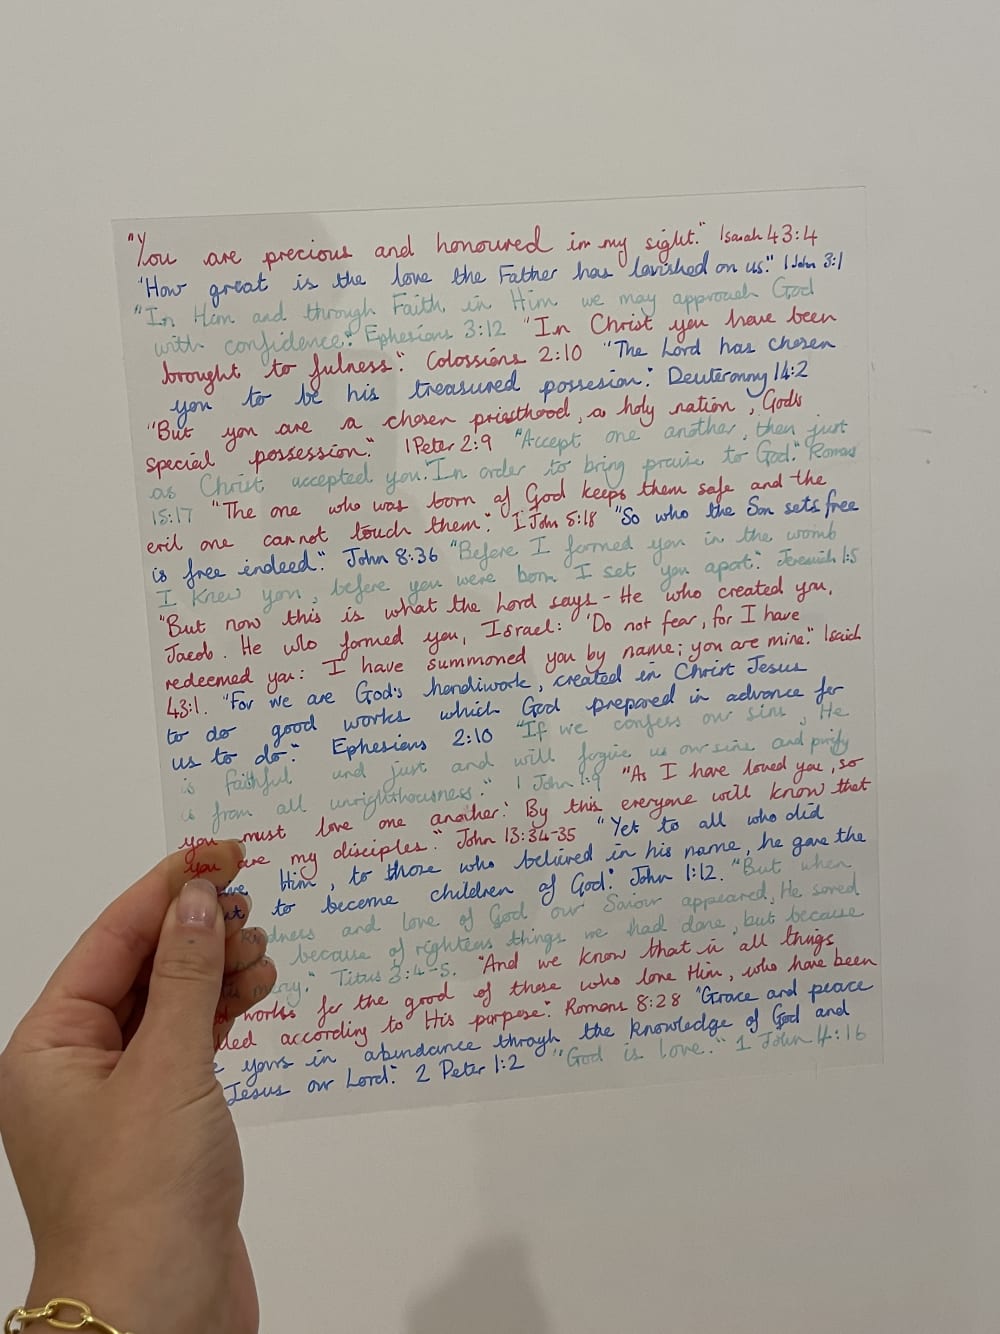 "You are precious and honoured in my sight." Isaiah 43:4
"How great is the love the Father has lavished on us." 1 John 3:1
"In Him and through Faith in Him we may approach God
with confidence." Ephesians 3:12 "In Christ you have been
brought to fulness." Colossians 2:10 "The Lord has chosen
you to be his treasured possesion." Deuteronmy 14:2
"But you are a chosen priesthood, a holy nation, God's
special possession." 1 Peter 2:9 "Accept one another, then just
as Christ accepted you. In order to bring praise to God." Romans
15:17 "The one who was born of God keeps them safe and the
evil one cannot touch them." 1 John 5:18 "So who the Son sets free
is free indeed." John 8:36 "Before I formed you in the womb
I knew you, before you were born I set you apart." Jeremiah 1:5
"But now this is what the Lord says - He who created you,
Jacob. He who formed you, Israel: 'Do not fear, for I have
redeemed you: I have summoned you by name; you are mine." Isaiah
43:1. "For we are God's handiwork, created in Christ Jesus
to do good works which God prepared in advance for
us to do." Ephesians 2:10 "If we confess our sins, He
is faithful and just and will forgive us our sins and purify
us from all unrighthousness." 1 John 1:9 "As I have loved you, so
you must love one another. By this everyone will know that
you are my disciples." John 13:34-35 "Yet to all who did
Him, to those who believed in his name, he gave the
to become children of God." John 1:12. "But when
kindness and love of God our Saviour appeared, He saved
because of righteous things we had done, but because
mercy." Titus 3:4-5. "And we know that in all things
works for the good of those who love Him, who have been
according to His purpose." Romans 8:28 "Grace and peace
yours in abundance through the knowledge of God and
Jesus our Lord." 2 Peter 1:2 "God is love." 1 John 4:16